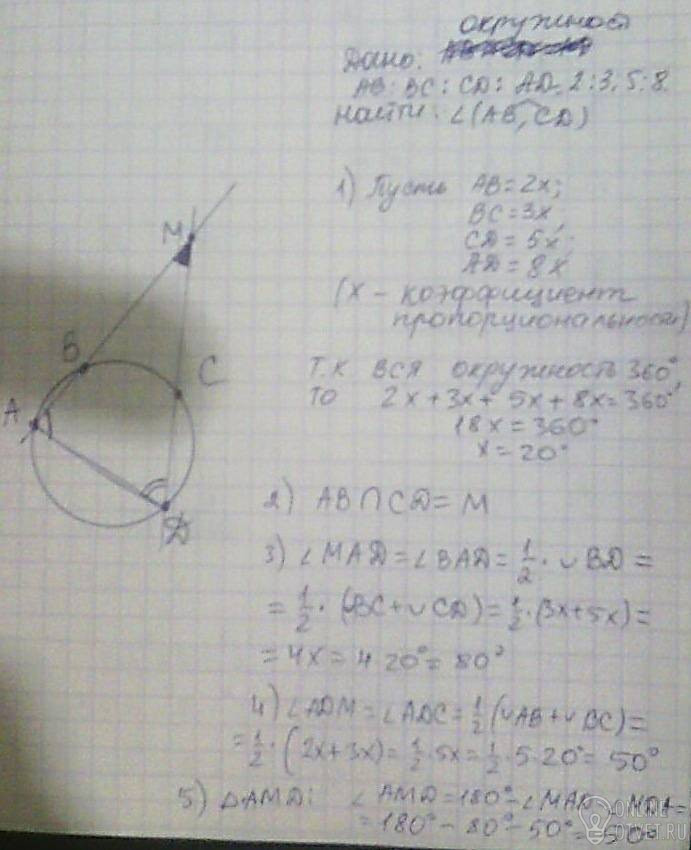 окружност
Дано:
AB:BC:CD:AD. 2:3,5:8.
Найти: ∠(AB, CD)
1) Пусть AB=2x;
BC=3x,
CD=5x;
AD=8x
(x - коэффициент
пропорциональности)
Т.К ВСЯ окружность 360°,
ТО 2x+3x+5x+8x=360°
18x=360°
x=20°
M
B
C
A
D
2) AB∩CD=M
3) ∠MAD=∠BAD=1/2·∪BD=
=1/2·(∪BC+∪CD)=1/2·(3x+5x)=
=4x=4·20°=80°
4) ∠ADM=∠ADC=1/2(∪AB+∪BC)=
=1/2·(2x+3x)=1/2·5x=1/2·5·20°=50°
5) △AMD: ∠AMD=180°-∠MAD-∠MDA=
=180°-80°-50°=50°
ONLINE
OTVET.RU